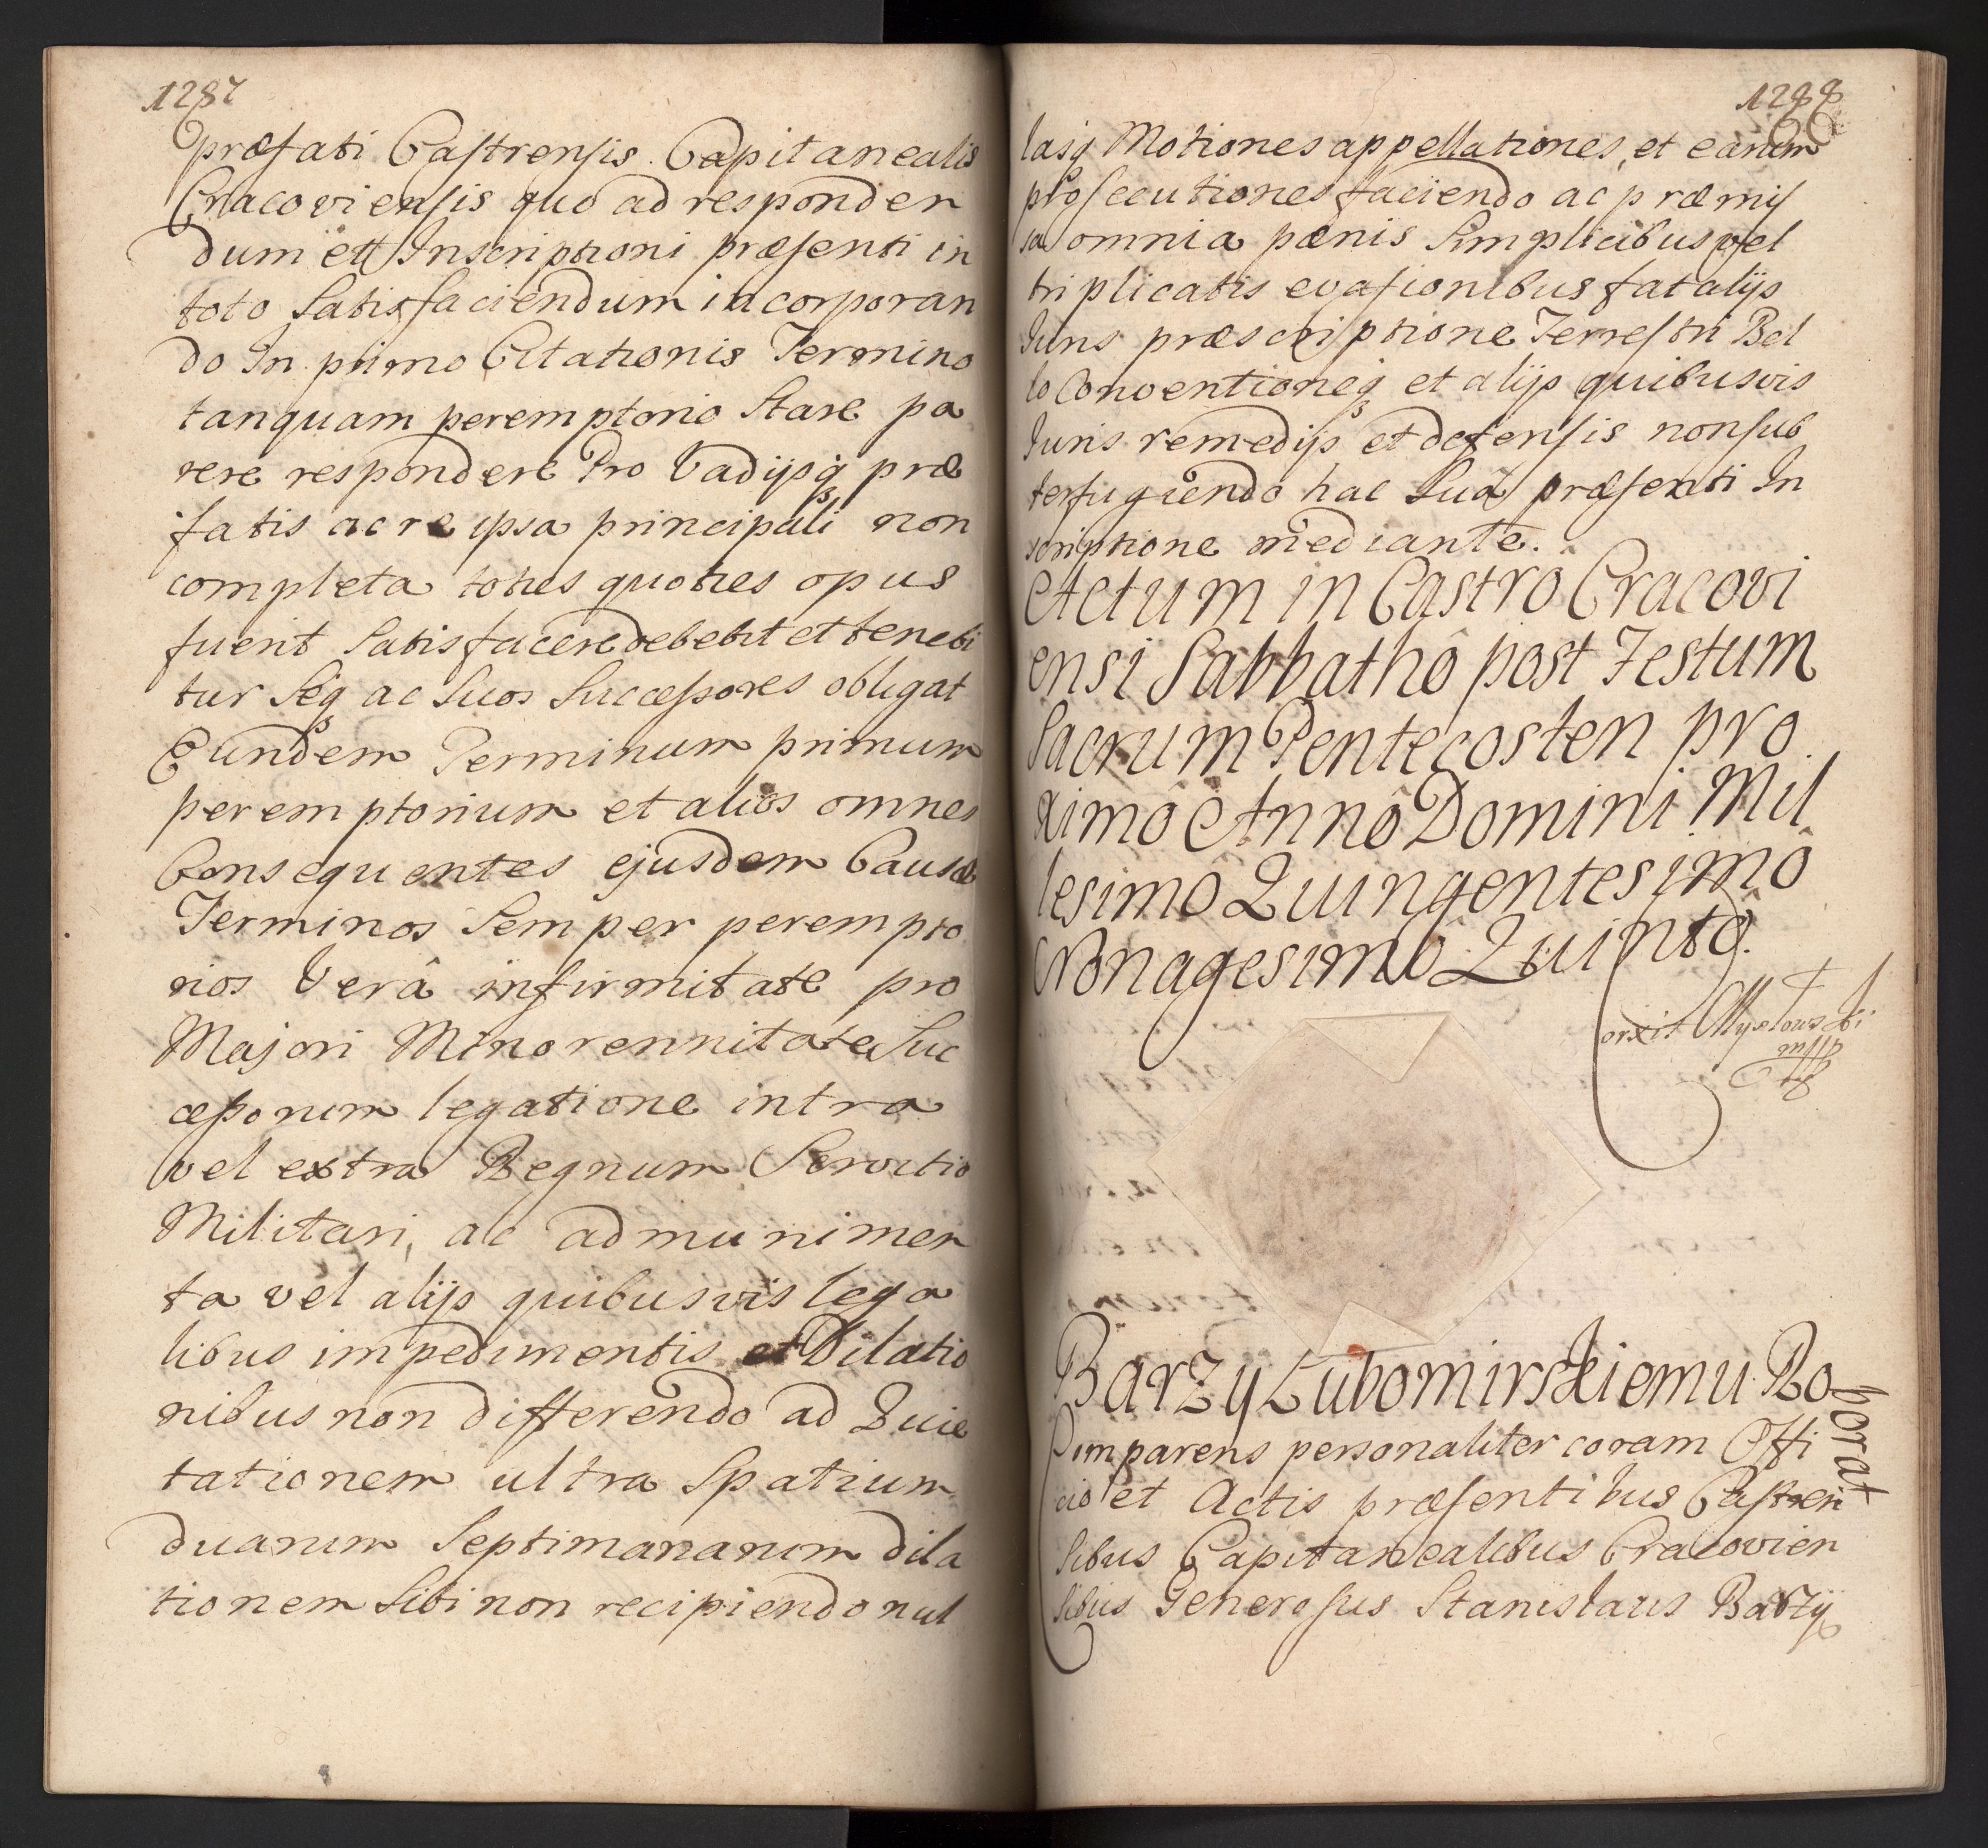 1287
præfati Castrensis Capitanealis
Cracoviensis quo ad responden
dum et Inscriptioni præsenti in
toto Satisfaciendum incorporan
do In primo Citationis Termino
tanquam peremptorio Stare pa
rere respondere Pro Vadijsq præ
fatis ac re ipsa principali non
completa toties quoties opus
fuerit Satisfacere debebit et tenebi
tur Seq ac Suos Successores obligat
Eundem Terminum primum
peremptorium et alios omnes
Consequentes ejusdem Causæ
Terminos Semper perempto
rios Verâ infirmitate pro
Majori Minorennitate Suc
cessorum legatione intra
vel extra Regnum Servitio
Militari, ac ad munimen
ta vel alijs quibusvis lega
libus impedimentis et Dilatio
nibus non differendo ad Quie
tationem ultra Spatium
duarum Septimanarum dila
tionem Sibi non recipiendo nul
1288
lasq Motiones appellationes, et earum
prosecutiones faciendo ac præmis
sa omnia pænis Simplicibus vel
triplicatis evasionibus fatalijs
Iuris præscriptione Terrestri Bel
lo Conventioneq et alijs quibusvis
Iuris remedijs et defensis non sub
terfugiendo hac Suâ præsenti In
scriptione mediante.
Actum in Castrô Cracovi
ensi Sabbathô post Festum
Sacrum Pentecosten pro
ximô Annô Domini Mil
lesimô Quingentesimô
Nonagesimô Quintô.
Barzy Lubomirskiemu Ro
borat
Comparens personaliter coram Offi
cio et Actis præsentibus Castren
Sibus Capitanealibus Cracovien
Sibus Generosus Stanislaus Barzy